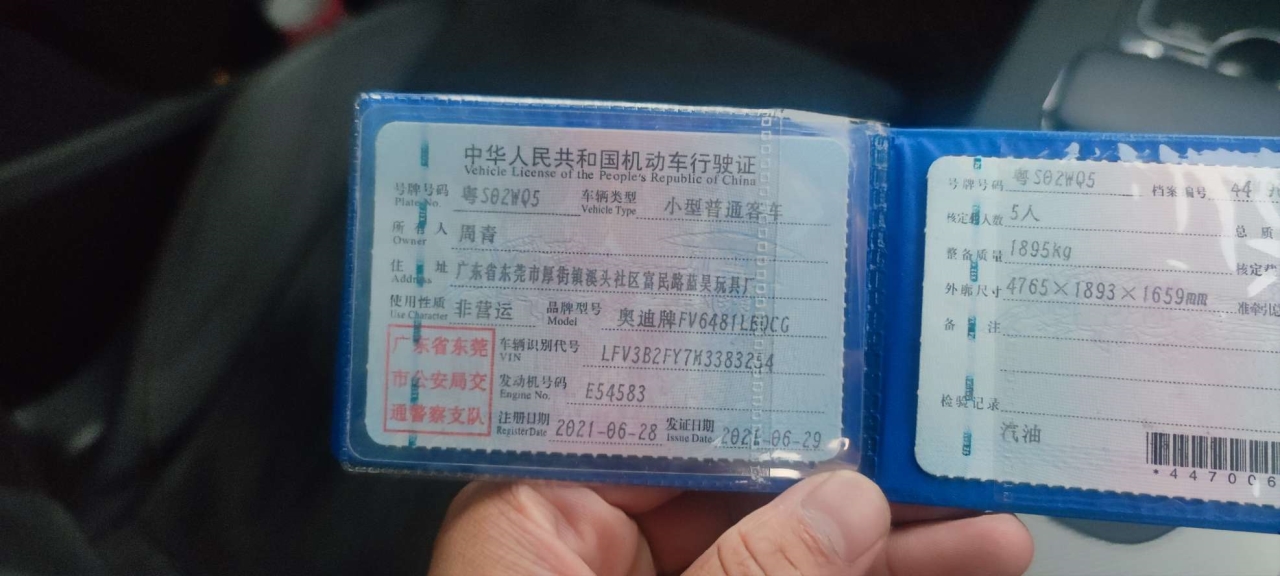 中华人民共和国机动车行驶证
Vehicle License of the People's Republic of China
号牌号码 粤S02WQ5 车辆类型 小型普通客车
Plate No. Vehicle Type
所有人 周青
Owner
住址 广东省东莞市厚街镇溪头社区富民路蓝昊玩具厂
Address
使用性质 非营运 品牌型号 奥迪牌FV6481LBQCG
Use Character Model
广东省东莞
市公安局交
通警察支队
车辆识别代号 LFV3B2FY7M3383254
VIN
发动机号码 E54583
Engine No.
注册日期 2021-06-28 发证日期 2021-06-29
Register Date Issue Date
号牌号码 粤S02WQ5 档案编号 44
核定载人数 5人 总质
整备质量 1895kg 核定载
外廓尺寸 4765×1893×1659mm 准牵引
备注
检验记录
汽油
*447006